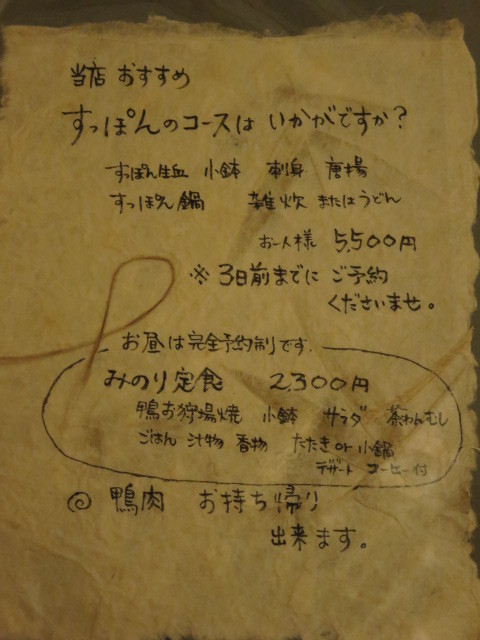 当店 おすすめ
すっぽんのコースは いかがですか?
すっぽん生血 小鉢 刺身 唐揚
すっぽん鍋 雑炊 またはうどん
お一人様 5,500円
※ 3日前までに ご予約
くださいませ。
お昼は完全予約制です.
みのり定食 2,300円
鴨お狩場焼 小鉢 サラダ 茶わんむし
ごはん 汁物 香物 たたき or 小鍋
デザート コーヒー付
◎ 鴨肉 お持ち帰り
出来ます。